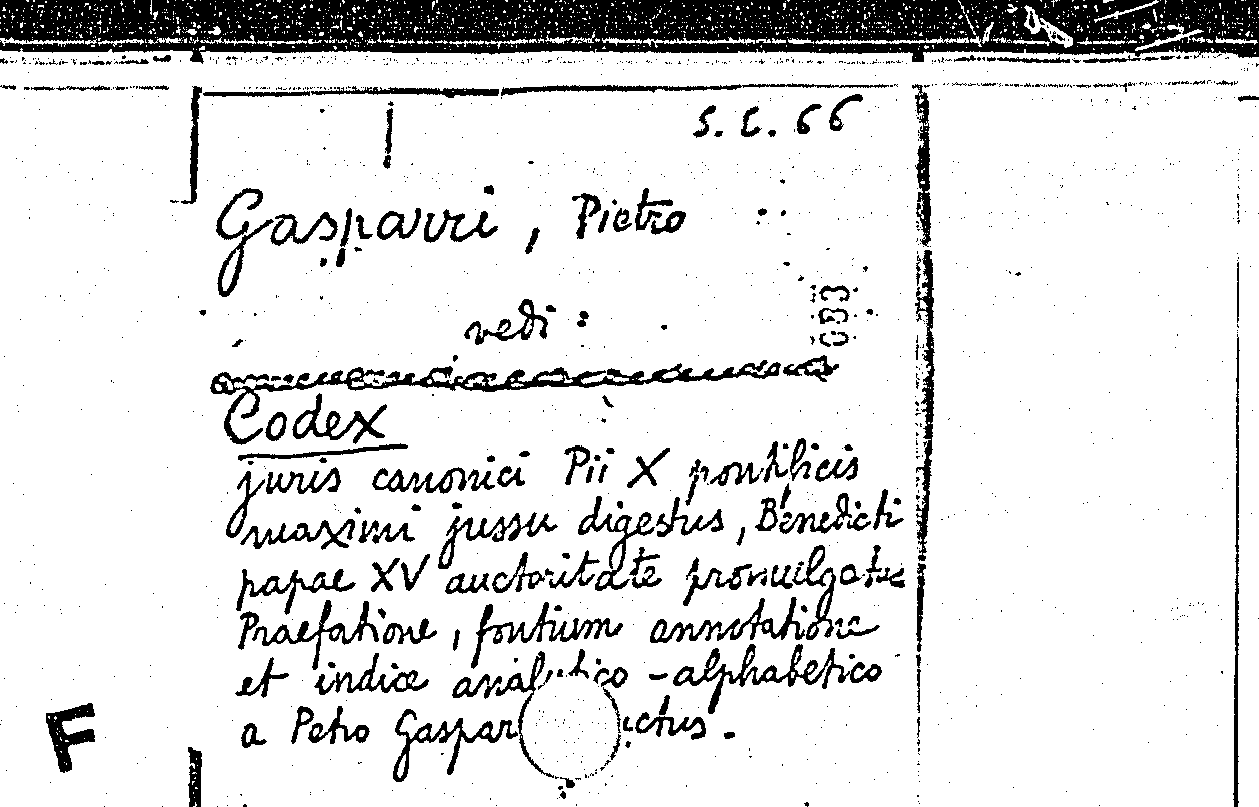 S. C. 66
Gasparri, Pietro
vedi:
Codex
juris canonici Pii X pontificis
maximi jussu digestus, Benedicti
papae XV auctoritate promulgatus
Praefatione, fontium annotatione
et indice analytico-alphabetico
a Petro Gaspar ctus.
F